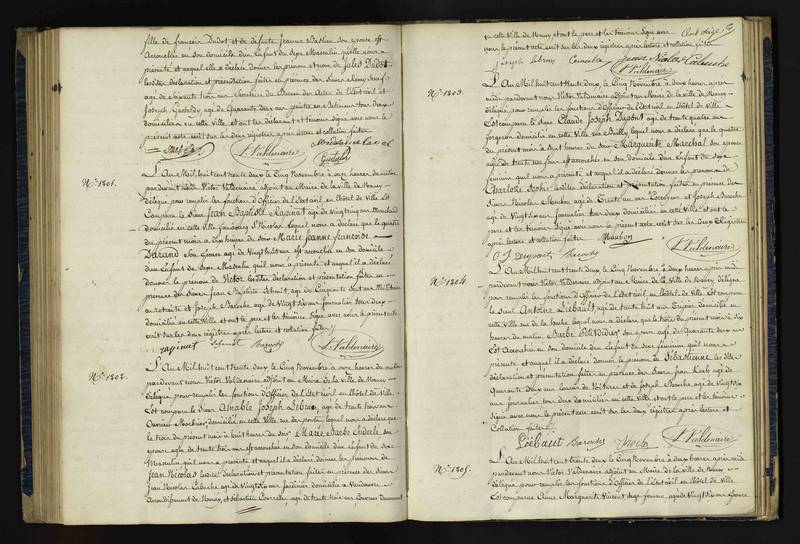 fille de françois Dudot et de défunte Jeanne Bastien son épouse est
accouchée en son domicile d'un Enfant du sexe Masculin qu'elle nous a
présenté et auquel elle a déclaré donner les prénoms et nom de Jules Dudot
les dites déclaration et présentation faites en présence des Sieurs
agé de soixante trois ans Secrétaire du Bureau des Actes de l'Etat civil et
Joseph agé de quarante deux ans peintre en Batiment tous deux
domiciliés en cette Ville, et ont les déclarant et témoins signé avec nous le
présent acte écrit sur les deux registres après lecture et collation faites
V. Valdenaire
N° 1301.
L'An Mil huit cent trente deux le Cinq Novembre à onze heures du matin
pardevant nous Victor Valdenaire adjoint au Maire de la ville de Nancy
délégué pour remplir les fonctions d'Officier de l'Etat civil en l'hôtel de Ville Est
Comparu le Sieur Jean Baptiste agé de vingt cinq ans Marchand
domicilié en cette ville faubourg St Nicolas, lequel nous a déclaré que le quatre
du présent mois à dix heures du soir Marie Jeanne françoise
Barand son Epouse agée de Vingt huit ans est accouchée en son domicile
d'un Enfant du Sexe Masculin qu'il nous a présenté et auquel il a déclaré
donner le prénom de Victor lesdites déclaration et présentation faites en
présence des Sieurs Jean Schmit, agé de Cinquante huit ans Militaire
en retraite et Joseph Barouche agé de Vingt six ans journalier tous deux
domiciliés en cette Ville et ont le pere et les témoins signé avec nous le présent acte
écrit sur les deux registres après lecture et collation faites
Schmit Barouche V. Valdenaire
N° 1302.
L'An Mil huit cent trente deux le Cinq Novembre à onze heures du matin
pardevant nous Victor Valdenaire adjoint au Maire de la Ville de Nancy
délégué pour remplir les fonctions d'Officier de l'Etat civil en l'hôtel de Ville
Est comparu le Sieur Aimable Joseph Lebrun, agé de trente trois ans
domicilié en cette ville rue du porte lequel nous a déclaré que
le trois du présent mois à huit heures du soir Marie Barbe son
épouse agée de trente trois ans est accouchée en son domicile d'un Enfant du Sexe
Masculin qu'il nous a présenté et auquel il a déclaré donner les prénoms de
Jean Nicolas lesdites déclaration et présentation faites en présence des Sieurs
Jean Nicolas agé de Vingt six ans Jardinier domicilié à
arrondissement de Nancy, et Sébastien agé de trente trois ans demeurant
en cette Ville de Nancy, et ont le pere et les témoins signé avec
nous le présent acte écrit sur les deux registres après lecture et collation faites
Joseph Lebrun Jean Nicolas
V. Valdenaire
N° 1303.
L'An Mil huit cent trente deux, le Cinq Novembre à deux heures après
midi pardevant nous Victor Valdenaire adjoint au Maire de la Ville de Nancy
délégué, pour remplir les fonctions d'Officier de l'Etat civil en l'hôtel de Ville
Est comparu le Sieur Claude Joseph Dupont agé de trente quatre ans
forgeron domicilié en cette Ville rue lequel nous a déclaré que le quatre
du présent mois à sept heures du soir Marguerite Marchal son épouse
agée de trente un ans est accouchée en son domicile d'un Enfant du Sexe
féminin qu'il nous a présenté et auquel il a déclaré donner les prénoms de
Charlotte Sophie lesdites déclaration et présentation faites en présence des
Sieurs Nicolas Maubon agé de Trente un ans et Joseph Barouche
agé de Vingt six ans journalier tous deux domiciliés en cette Ville et ont le
pere et les témoins signé avec nous le présent acte écrit sur les deux Registres
après lecture et collation faites Maubon
C J Dupont Barouche V. Valdenaire
N° 1304.
L'An Mil huit cent trente deux, le Cinq Novembre à deux heures après midi
pardevant nous Victor Valdenaire, adjoint au Maire de la Ville de Nancy délégué
pour remplir les fonctions d'Officier de l'Etat civil, en l'hôtel de Ville Est comparu
le Sieur Antoine Liébaut agé de trente huit ans domicilié en
cette Ville rue de la lequel nous a déclaré que le trois du présent mois à six
heures du matin Barbe Petitdidier son épouse agée de Quarante deux ans
Est Accouchée en son domicile d'un Enfant du Sexe féminin qu'il nous a
présenté et auquel il a déclaré donner le prénom de Sébastienne les dites
déclaration et présentation faites en présence des Sieurs Jean agé de
Quarante Deux ans et Joseph Barouche agé de vingt six
ans journalier tous deux domiciliés en cette Ville, et ont le pere et les témoins
signé avec nous le présent acte écrit sur les deux registres après lecture et
Collation faites
Liébaut Barouche V. Valdenaire
N° 1305.
L'An Mil huit cent trente deux le Cinq Novembre à deux heures après midi
pardevant nous Victor Valdenaire adjoint au Maire de la Ville de Nancy
délégué pour remplir les fonctions d'Officier de l'Etat civil en l'hôtel de Ville
Est comparue Anne Marguerite Vincent sage femme, agée de Vingt six ans